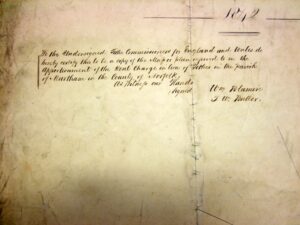 1842
We the Undersigned Tithe Commissioners for England and Wales do
hereby certify this to be a copy of the Map or plan referred to in the
Apportionment of the Rent Charge in lieu of Tithes in the parish
of Martham in the County of Norfolk.
As Witness our Hands
Signed Wm Blamire
T. W. Buller.